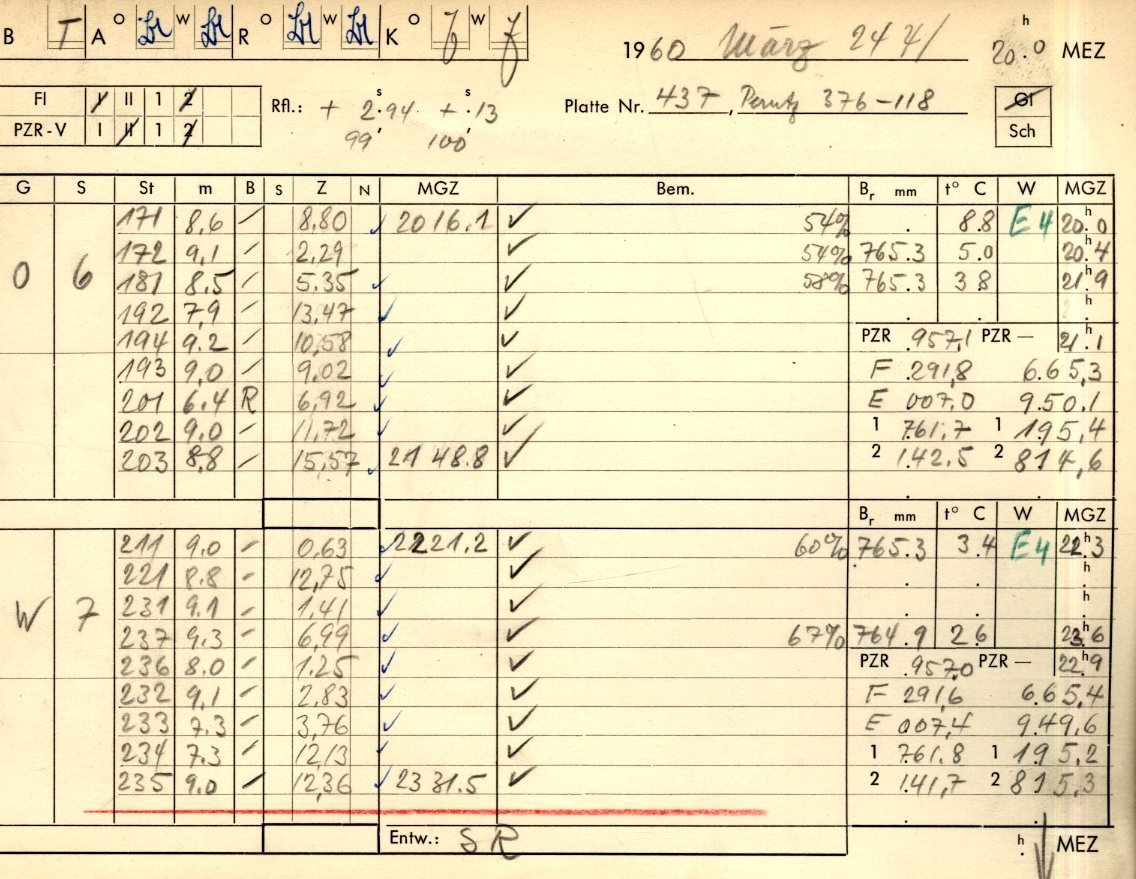 B T A O W R O W K O W
1960 März 24 h 20.0 MEZ
FI I II 1 2
PZR-V I II 1 2
Rfl.: + 2.94 s + .13 s
99' 100'
Platte Nr. 437, Perutz 376-118
Gl
Sch
G S St m B S Z N MGZ Bem. Br mm t° C W MGZ
171 8,6 / 8.80 2016.1 ✓ 54% . 8.8 E4 20.h0
172 9,1 / 2,29 ✓ 54% 765.3 5.0 20.h4
O 6 181 8,5 / 5.35 ✓ 58% 765.3 3.8 21.h9
192 7,9 / 13,47 ✓ . . h
194 9.2 / 10,58 ✓ PZR .957,1 PZR — 21.h1
193 9,0 / 9,02 ✓ F .291,8 6.65,3
201 6.4 R 6,92 ✓ E 007,0 9.50.1
202 9.0 / 11,72 ✓ 1 761,7 1 195,4
203 8,8 / 15,57 2148.8 ✓ 2 142.5 2 814,6
Br mm t° C W MGZ
211 9.0 / 0,63 2221.2 ✓ 60% 765.3 3.4 E4 22.h3
221 8.8 / 12,75 ✓ . . h
W 7 231 9.1 / 1,41 ✓ . . h
237 9.3 / 6,99 ✓ 67% 764.9 2.6 23.h6
236 8.0 / 1.25 ✓ PZR .957,0 PZR — 22.h9
232 9,1 / 2,83 ✓ F 291,6 6.65,4
233 7.3 / 3,76 ✓ E 007,4 9.49,6
234 7.3 / 12,13 ✓ 1 761.8 1 195,2
235 9.0 / 12,36 2331.5 ✓ 2 141,7 2 815,3
Entw.: SR h . MEZ